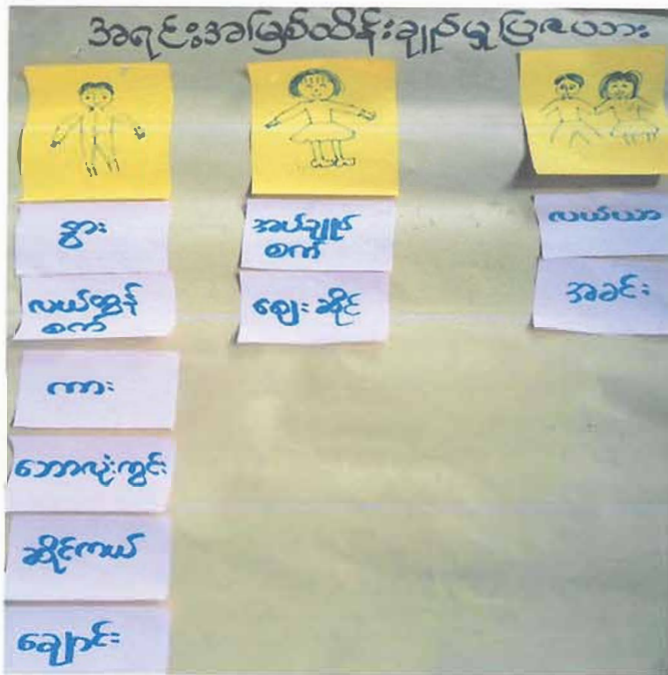 အရင်းအမြစ်ထိန်းချုပ်မှုပြဇယား
နွား
လယ်ထွန်
စက်
ကား
ဘောလုံးကွင်း
ဆိုင်ကယ်
ချောင်း
အပ်ချုပ်
စက်
ဈေးဆိုင်
လယ်ယာ
အခင်း